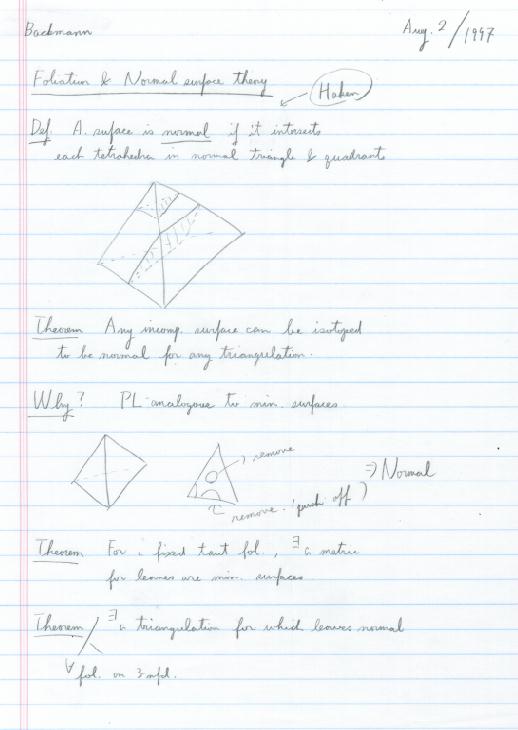 Backmann
Aug. 2/1997
Foliation & Normal surface theory
Haken
Def. A. suface is normal if it intersects
each tetrahedra in normal triangle & quadrants
Theorem Any incomp. surface can be isotoped
to be normal for any triangulation.
Why? PL analogous to min. surfaces.
remove
⇒ Normal
remove. (push off)
Theorem For a fixed taut fol., ∃ a metric
for leaves are min. surfaces.
Theorem ∃ a triangulation for which leaves normal
∀ fol. on 3 mfd.